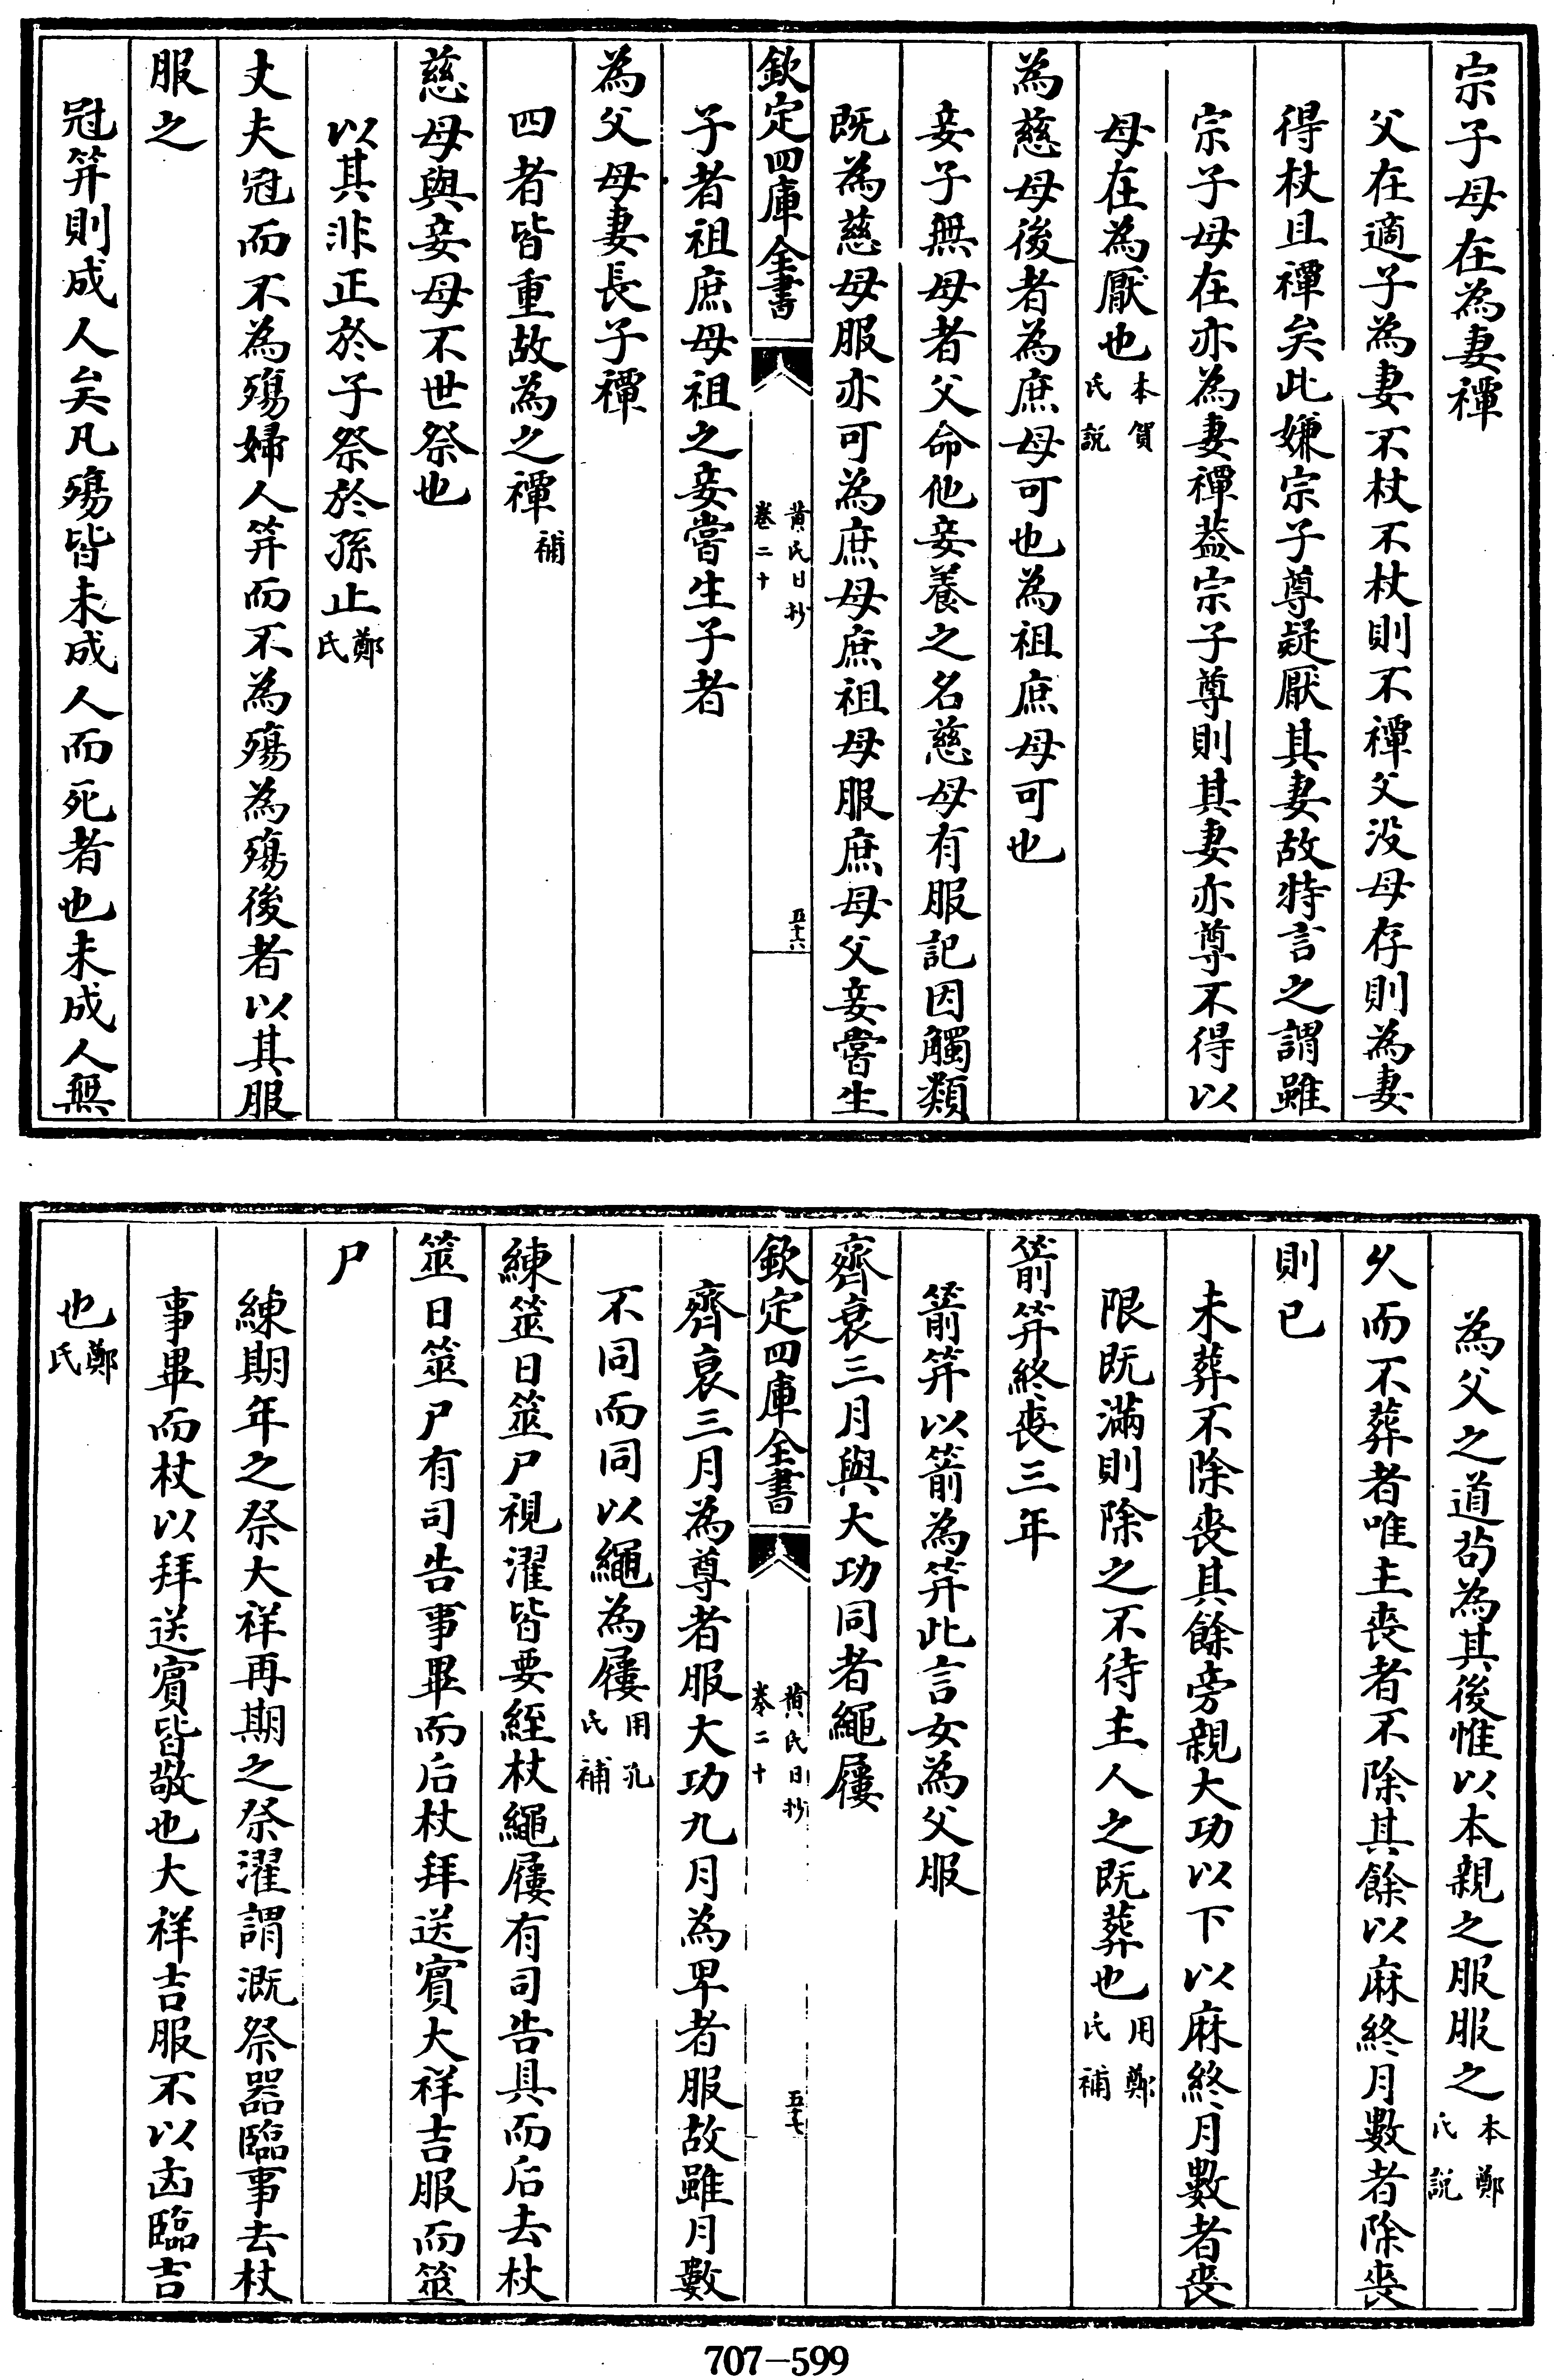 宗子母在為妻禫
父在適子為妻不杖不杖則不禫父没母存則為妻
得杖且禫矣此嫌宗子尊疑厭其妻故特言之謂雖
宗子母在亦為妻禫葢宗子尊則其妻亦尊不得以
母在為厭也本賀氏説
為慈母後者為庶母可也為祖庶母可也
妾子無母者父命他妾養之名慈母有服記因觸類
既為慈母服亦可為庶母庶祖母服庶母父妾嘗生
欽定四庫全書 黄氏日抄卷二十 五十六
子者祖庶母祖之妾嘗生子者
為父母妻長子禫
四者皆重故為之禫補
慈母與妾母不世祭也
以其非正於子祭於孫止鄭氏
丈夫冠而不為殤婦人笄而不為殤為殤後者以其服
服之
冠笄則成人矣凡殤皆未成人而死者也未成人無
為父之道茍為其後惟以本親之服服之本鄭氏説
乆而不葬者唯主喪者不除其餘以麻終月數者除喪
則已
未葬不除喪其餘旁親大功以下以麻終月數者喪
限既滿則除之不待主人之既葬也用鄭氏補
箭笄終喪三年
箭笄以箭為笄此言女為父服
齊衰三月與大功同者繩屨
欽定四庫全書 黄氏日抄卷二十 五十七
齊衰三月為尊者服大功九月為卑者服故雖月數
不同而同以繩為屨用孔氏補
練筮日筮尸視濯皆要絰杖繩屨有司告具而后去杖
筮日筮尸有司告事畢而后杖拜送賓大祥吉服而筮
尸
練期年之祭大祥再期之祭濯謂溉祭器臨事去杖
事畢而杖以拜送賓皆敬也大祥吉服不以凶臨吉
也鄭氏
707-599